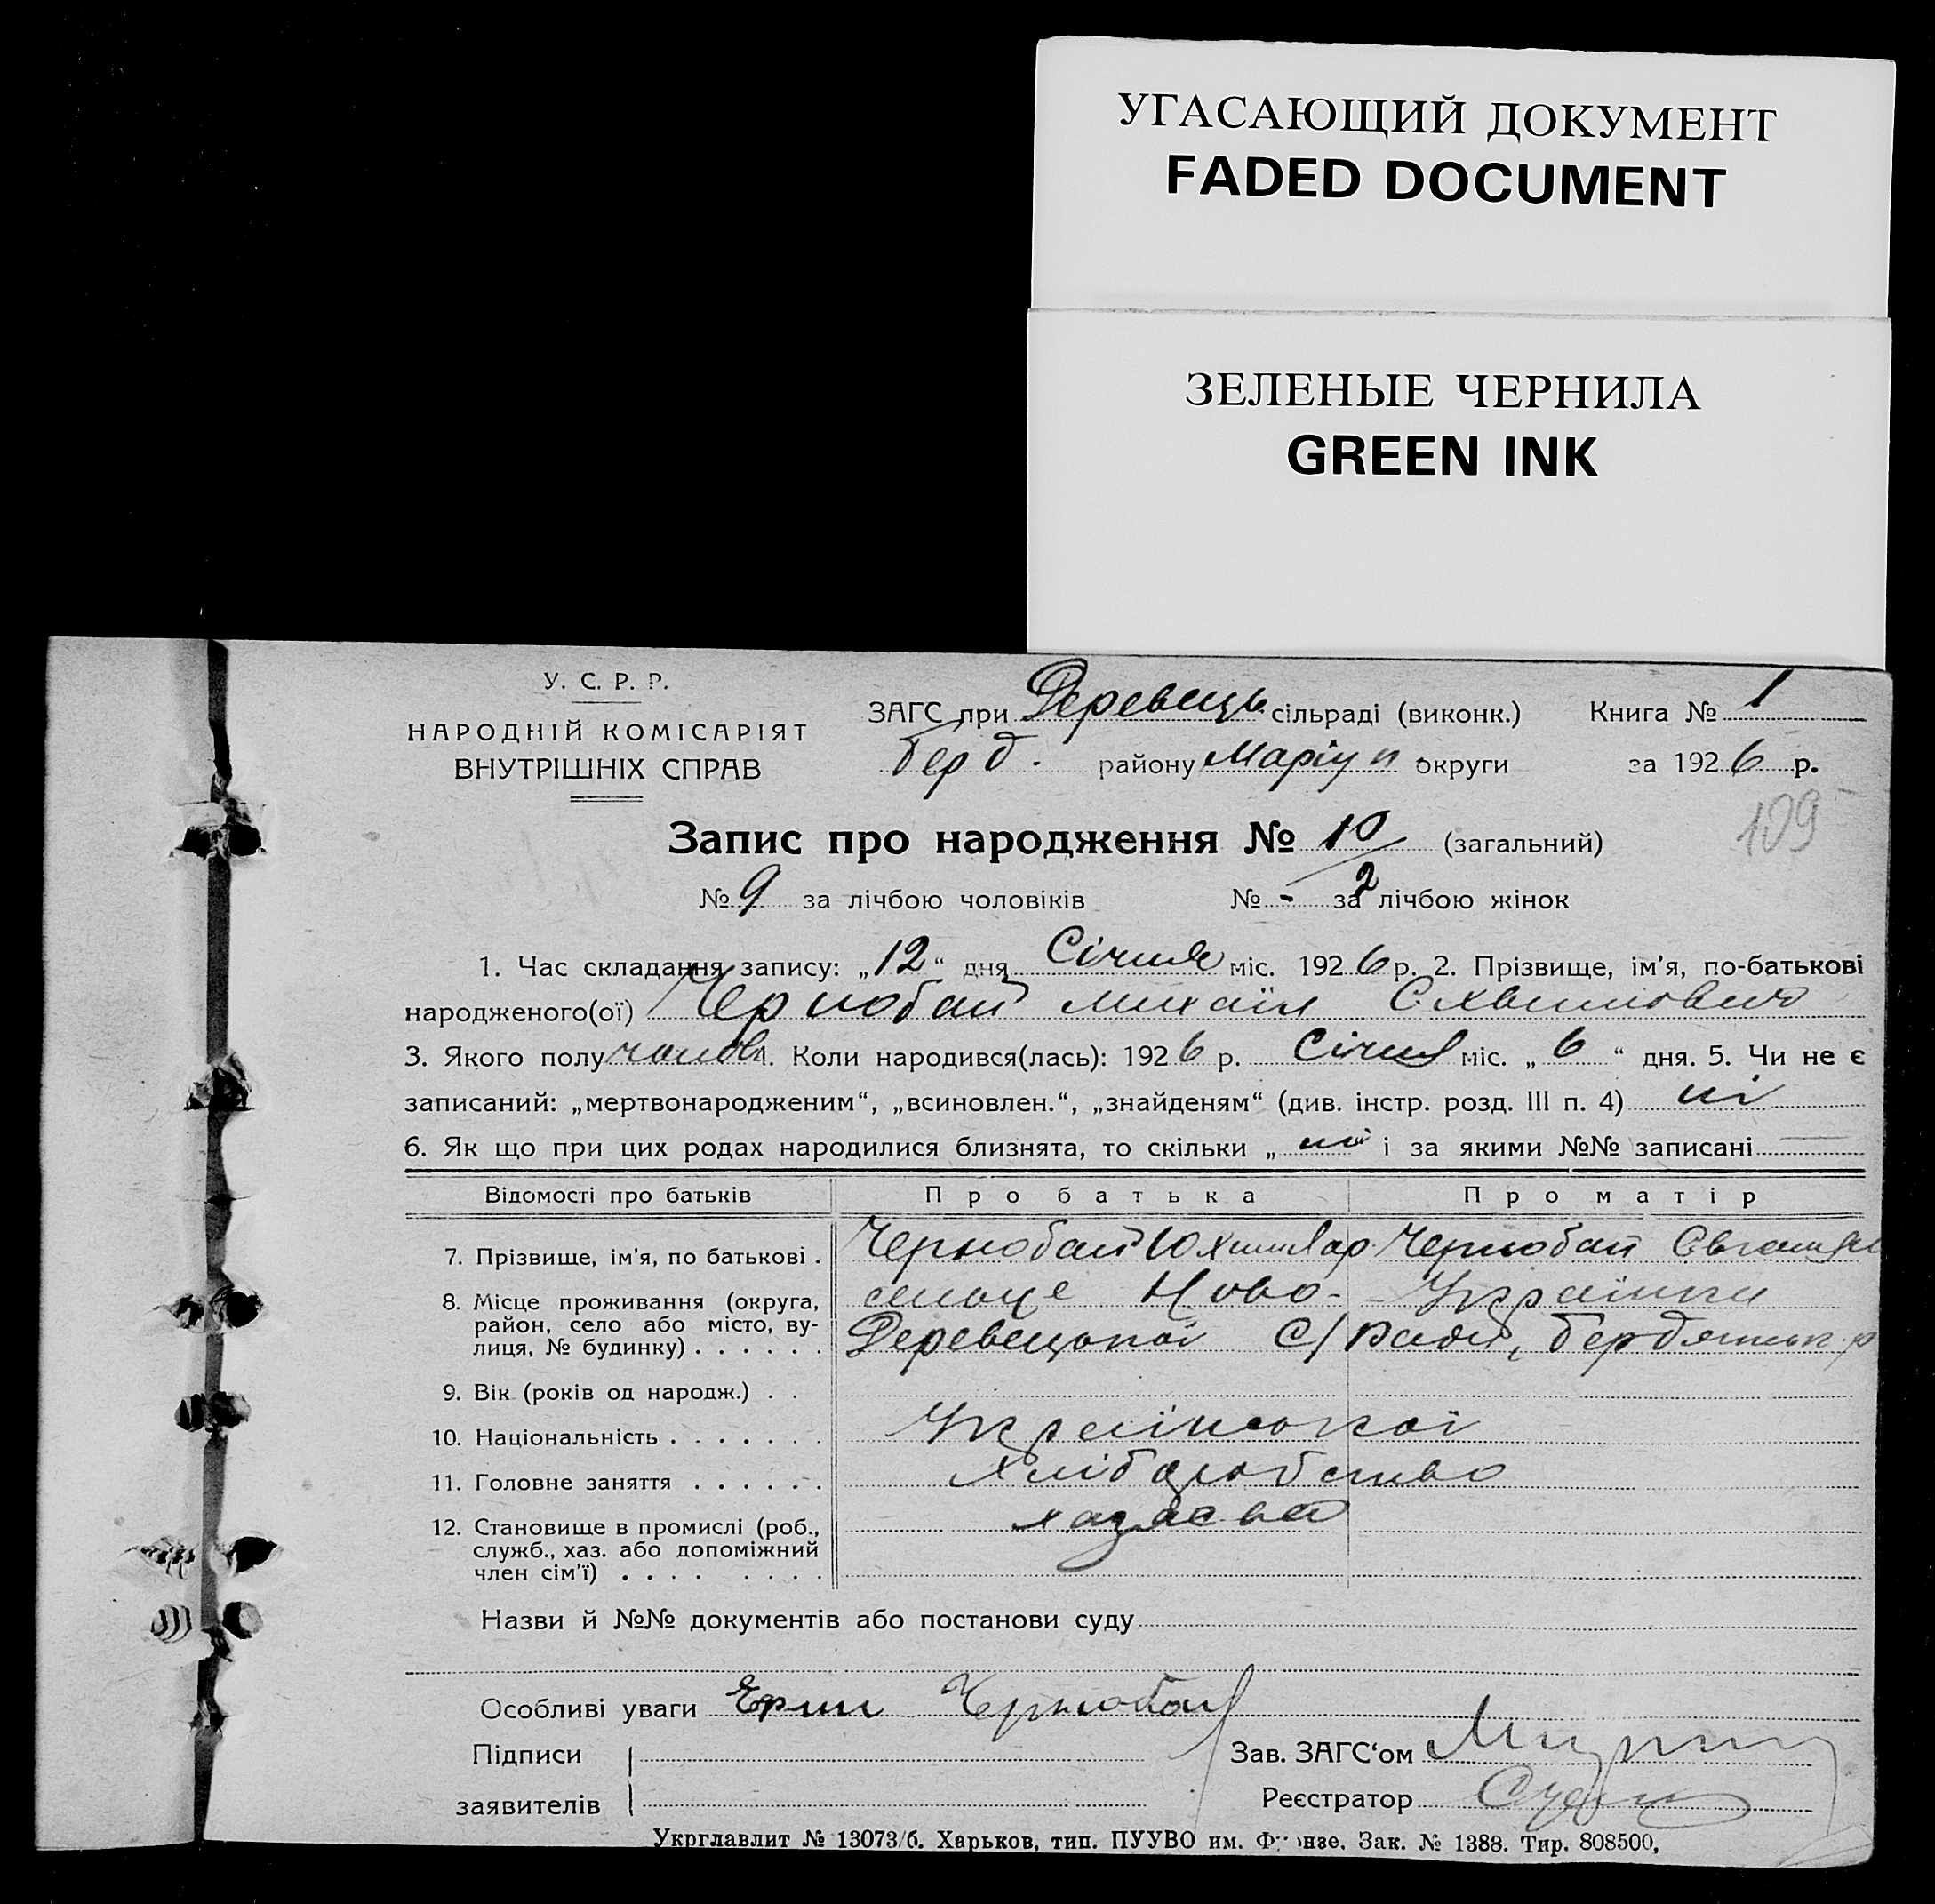 УГАСАЮЩИЙ ДОКУМЕНТ
FADED DOCUMENT
ЗЕЛЕНЫЕ ЧЕРНИЛА
GREEN INK
У. С. Р. Р.
НАРОДНІЙ КОМІСАРІЯТ
ВНУТРІШНІХ СПРАВ
ЗАГС при Деревець. сільраді (виконк.) Книга № 1
Берд. району Маріуп округи за 1926 р.
109
Запис про народження № 10 (загальний)
2
№ 9 за лічбою чоловіків № - за лічбою жінок
1. Час складання запису: „12“ дня Січня міс. 1926 р. 2. Прізвище, ім'я, по-батькові
народженого(ої) Чернобай Михаїл
3. Якого полу чолов 4. Коли народився(лась): 1926 р. Січня міс. „ 6 “ дня. 5. Чи не є
записаний: „мертвонародженим“, „всиновлен.“, „знайденям“ (див. інстр. розд. III п. 4) ні
6. Як що при цих родах народилися близнята, то скільки „ ні і за якими №№ записані
Відомості про батьків Про батька Про матір
7. Прізвище, ім'я, по батькові . Чернобай Юхим Чернобай
8. Місце проживання (округа, район, село або місто, вулиця, № будинку) . . . . . . Ново-Українки
Деревецької С/Ради, Бердянськ. р
9. Вік (років од народж.) . .
10. Національність . . . . . . . Української
11. Головне заняття . . . . . . Хліборобство
12. Становище в промислі (роб., служб., хаз. або допоміжний член сім'ї) . . . . . . . . хазяєва
Назви й №№ документів або постанови суду
Особливі уваги Чернобай
Підписи
заявителів
Зав. ЗАГС‘ом
Реєстратор
Укрглавлит № 13073/б. Харьков, тип. ПУУВО им. Фрунзе. Зак. № 1388. Тир. 808500,